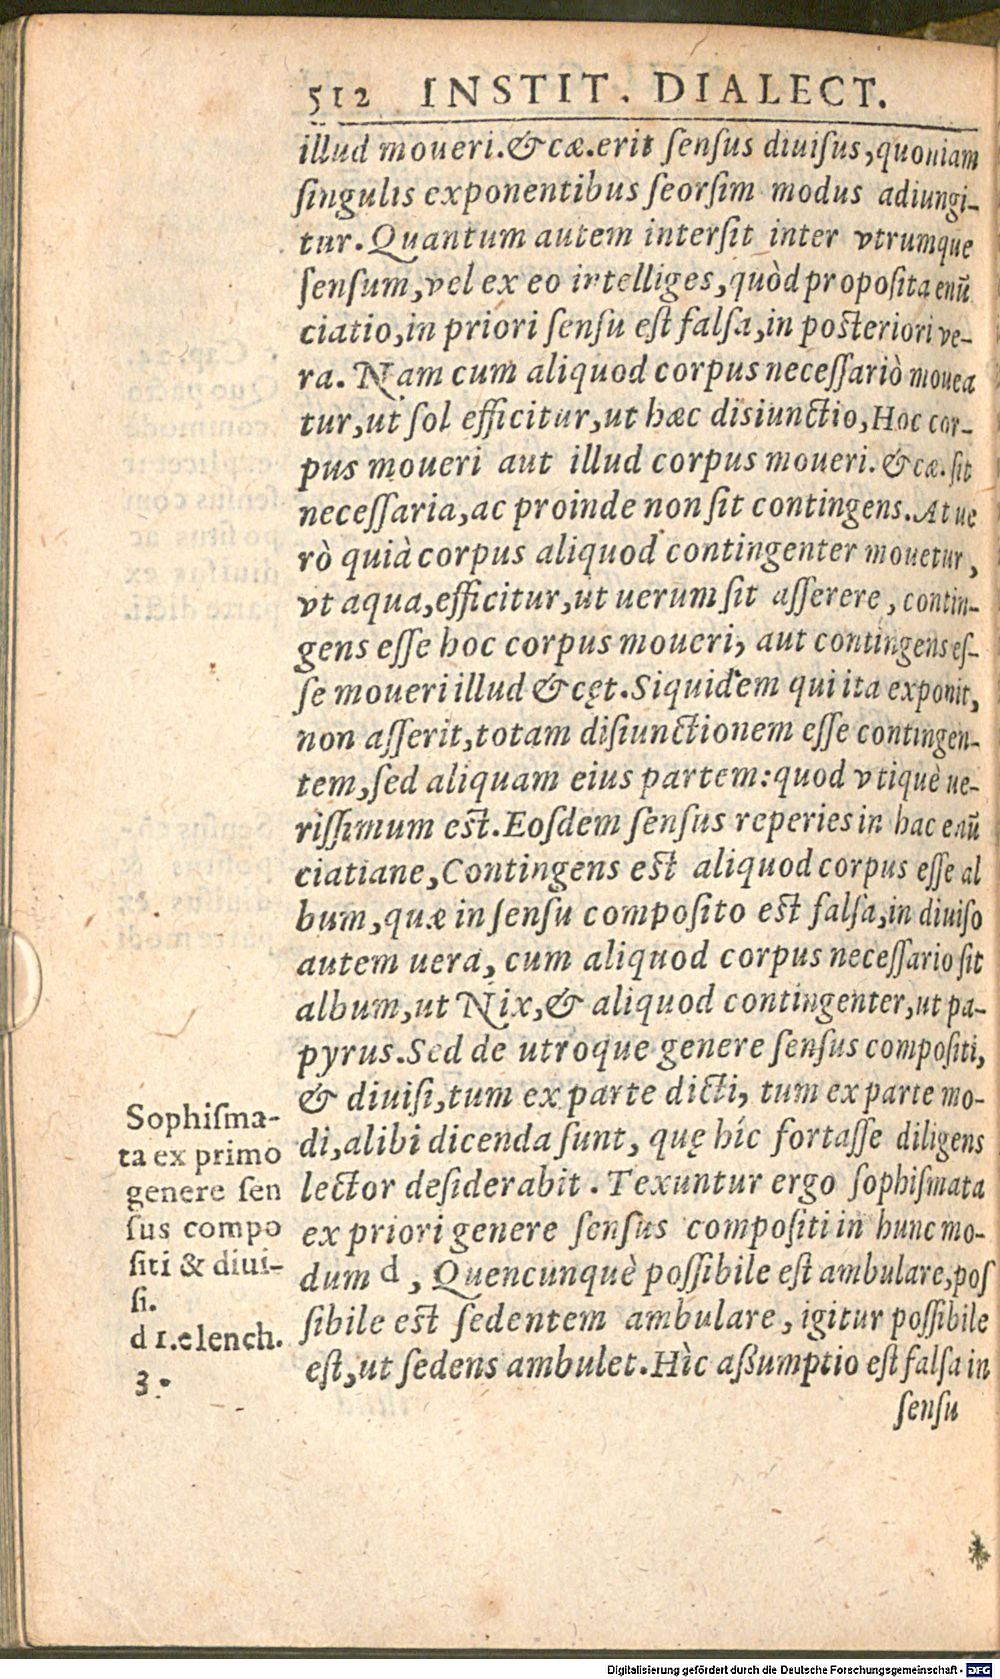 512 INSTIT. DIALECT.
illud moueri.&cæ.erit ſenſus diuiſus,quoniam
ſingulis exponentibus ſeorſim modus adiungi-
tur.Quantum autem interſit inter vtrumque
ſenſum,vel ex eo intelliges,quòd propoſita enũ
ciatio,in priori ſenſu eſt falſa,in poſteriori ve-
ra. Nam cum aliquod corpus neceſſariò mouea
tur,ut ſol efficitur,ut hæc disiunctio,Hoc cor-
pus moueri aut illud corpus moueri.&cæ.ſit
neceſſaria,ac proinde non ſit contingens.At ue
rò quià corpus aliquod contingenter mouetur,
vt aqua,efficitur,ut uerum ſit aſſerere, contin-
gens eſſe hoc corpus moueri, aut contingens eſ-
ſe moueri illud &cęt.Siquidem qui ita exponit,
non aſſerit,totam diſiunctionem eſſe contingen-
tem,ſed aliquam eius partem:quod vtiquè ue-
riſſimum eſt.Eoſdem ſenſus reperies in hac enũ
ciatiane,Contingens eſt aliquod corpus eſſe al
bum,quæ in ſenſu compoſito eſt falſa,in diuiſo
autem uera, cum aliquod corpus neceſſario ſit
album,ut Nix,& aliquod contingenter,ut pa-
pyrus.Sed de utroque genere ſenſus compoſiti,
& diuiſi,tum ex parte dicti, tum ex parte mo-
di,alibi dicenda ſunt, quę híc fortaſſe diligens
lector deſiderabit. Texuntur ergo ſophiſmata
ex priori genere ſenſus compoſiti in hunc mo-
dum d, Quencunquè poſſibile eſt ambulare,poſ
ſibile eſt ſedentem ambulare, igitur poſſibile
eſt,ut ſedens ambulet.Hìc aßumptio eſt falſa in
ſenſu
Sophiſma-
ta ex primo
genere ſen
ſus compo
ſiti & diui-
ſi.
d 1.elench.
3.
Digitalisierung gefördert durch die Deutsche Forschungsgemeinschaft - DFG